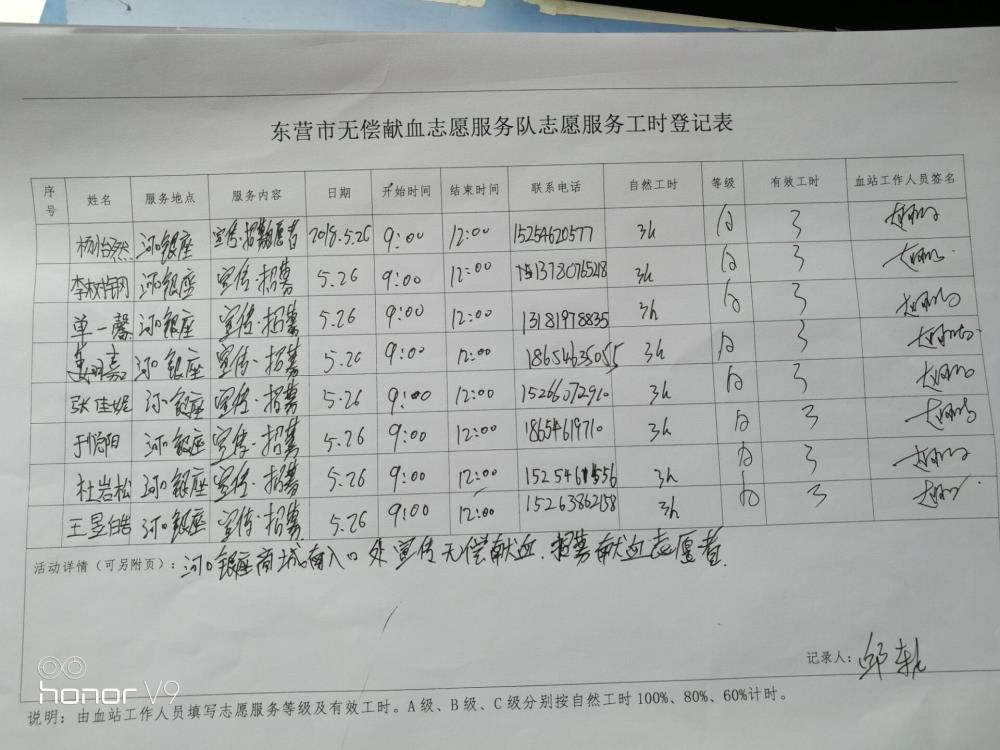 东营市无偿献血志愿服务队志愿服务工时登记表
序号 姓名 服务地点 服务内容 日期 开始时间 结束时间 联系电话 自然工时 等级 有效工时 血站工作人员签名
杨怡然 河口银座 宣传·招募志愿者 2018.5.26 9:00 12:00 15254620577 3h A 3
李树特网 河口银座 宣传·招募 5.26 9:00 12:00 13780765218 3h A 3
单一馨 河口银座 宣传·招募 5.26 9:00 12:00 13181978835 3h A 3
姜明嘉 河口银座 宣传·招募 5.26 9:00 12:00 18654635055 3h A 3
张佳妮 河口银座 宣传·招募 5.26 9:00 12:00 15266072910 3h A 3
河口银座 宣传·招募 5.26 9:00 12:00 18654619710 3h A 3
杜岩松 河口银座 宣传·招募 5.26 9:00 12:00 3h A 3
王昱皓 河口银座 宣传·招募 5.26 9:00 12:00 15263862158 3h A 3
活动详情（可另附页）：河口银座商城南入口处宣传无偿献血.招募献血志愿者.
记录人：
honor V9
说明：由血站工作人员填写志愿服务等级及有效工时。A级、B级、C级分别按自然工时100%、80%、60%计时。